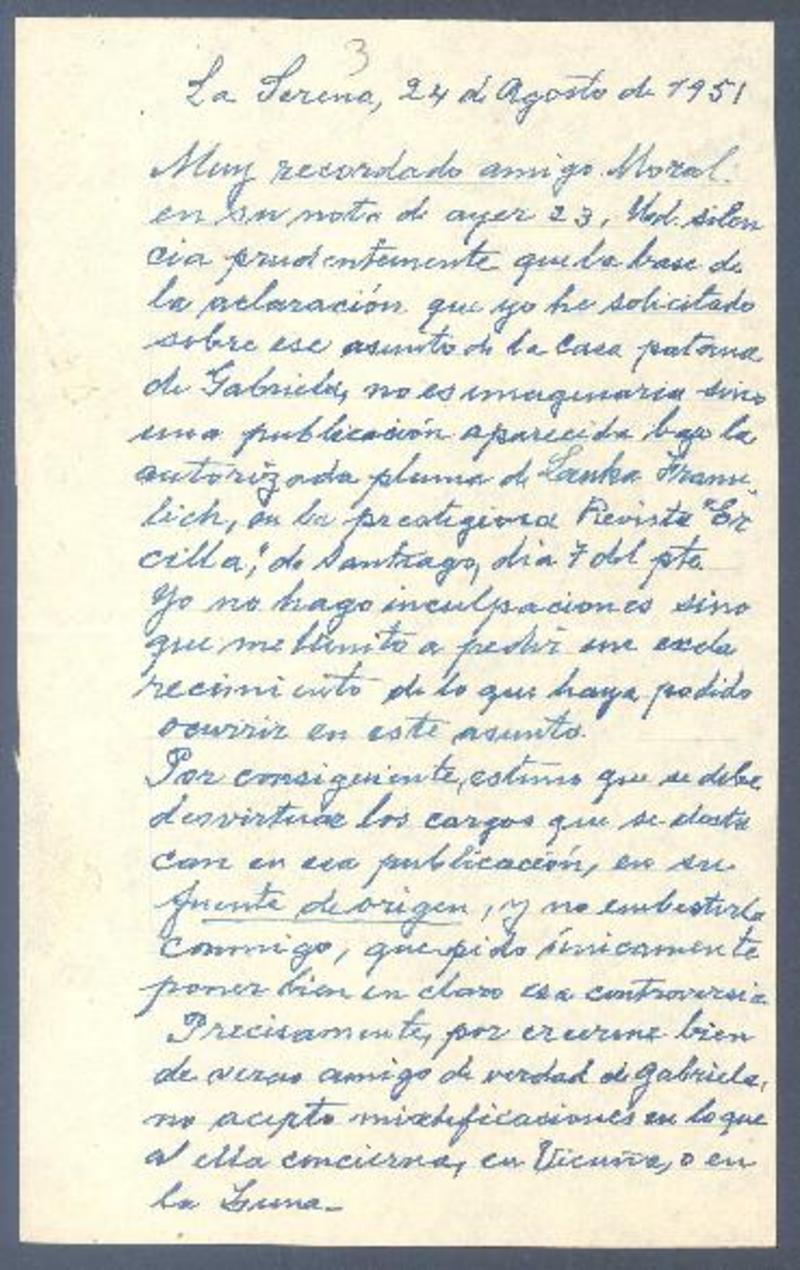 3
La Serena, 24 de Agosto de 1951
Muy recordado amigo Moral.
en su nota de ayer 23, Ud. silen
cia prudentemente que la base de
la aclaración que yo he solicitado
sobre ese asunto de la Casa paterna
de Gabriela, no es imaginaria sino
una publicación aparecida bajo la
autorizada pluma de Lenka Franu
lich, en la prestigiosa Revista "Er
cilla", de Santiago, dia 7 del pte.
Yo no hago inculpaciones sino
que me limito a pedir un escla
recimiento de lo que haya podido
ocurrir en este asunto.
Por consiguiente, estimo que se debe
desvirtuar los cargos que se desta
can en esa publicación, en su
fuente de origen, y no embestirla
conmigo, que pido únicamente
poner bien en claro esa controversia
Precisamente, por creerme bien
de veras amigo de verdad de Gabriela,
no acepto mixtificaciones en lo que
a ella concierna, en Vicuña, o en
la Luna.